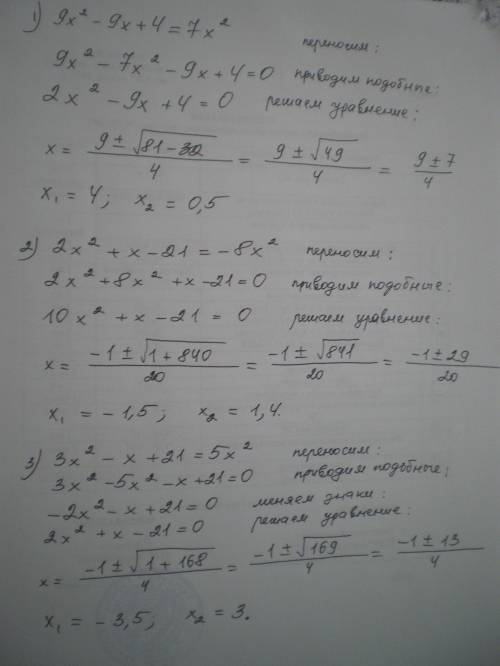 1) 9x² - 9x + 4 = 7x²
переносим:
9x² - 7x² - 9x + 4 = 0 приводим подобные:
2x² - 9x + 4 = 0 решаем уравнение:
x = (9 ± √(81 - 32))/4 = (9 ± √49)/4 = (9 ± 7)/4
x₁ = 4; x₂ = 0,5
2) 2x² + x - 21 = -8x² переносим:
2x² + 8x² + x - 21 = 0 приводим подобные:
10x² + x - 21 = 0 решаем уравнение:
x = (-1 ± √(1 + 840))/20 = (-1 ± √841)/20 = (-1 ± 29)/20
x₁ = -1,5; x₂ = 1,4.
3) 3x² - x + 21 = 5x² переносим:
3x² - 5x² - x + 21 = 0 приводим подобные;
-2x² - x + 21 = 0 меняем знаки:
2x² + x - 21 = 0 решаем уравнение:
x = (-1 ± √(1 + 168))/4 = (-1 ± √169)/4 = (-1 ± 13)/4
x₁ = -3,5; x₂ = 3.